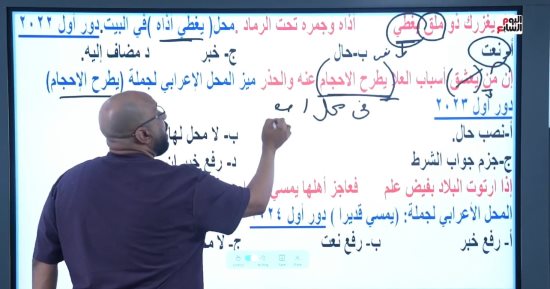 يغررك ذو ملق يغطي أذاه وجمره تحت الرماد .محل( يغطي أذاه )في البيت.دور أول ٢٠٢٢
أ- نعت ب-حال ج- خبر د- مضاف إليه.
إن من يعشق أسباب العلا يطرح الاحجام عنه والحذر ميز المحل الاعرابي لجملة (يطرح الإحجام)
دور أول ٢٠٢٣
في محل
أ-نصب حال. ب- لا محل لها
ج-جزم جواب الشرط د- رفع خبر
إذا ارتوت البلاد بفيض علم فعاجز أهلها يمسي
المحل الاعرابي لجملة: (يمسي قديرا ) دور أول ٢٠٢٤
أ- رفع خبر ب- رفع نعت ج- لا
اليوم السابع